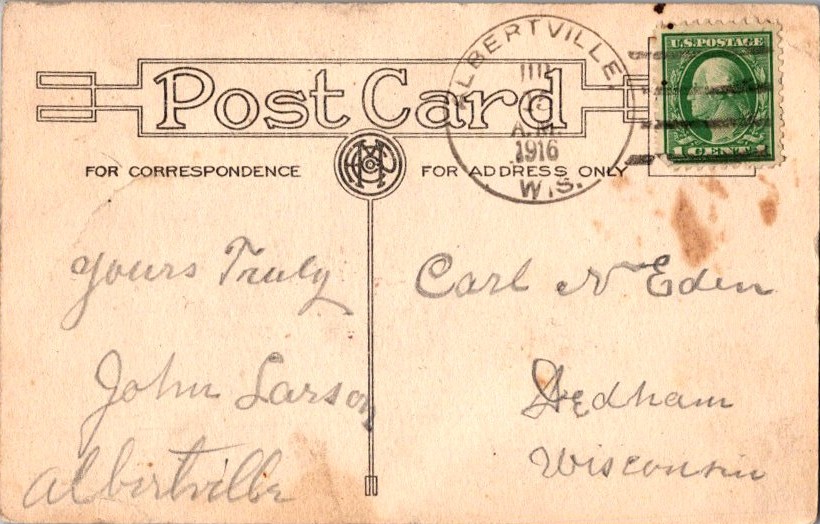 Post Card
ALBERTVILLE,
A.M.
1916
WIS.
U.S. POSTAGE
1 CENT 1
FOR CORRESPONDENCE
FOR ADDRESS ONLY
Yours Truly
John Larson
Albertville
Carl N Eden
Dedham
Wisconsin